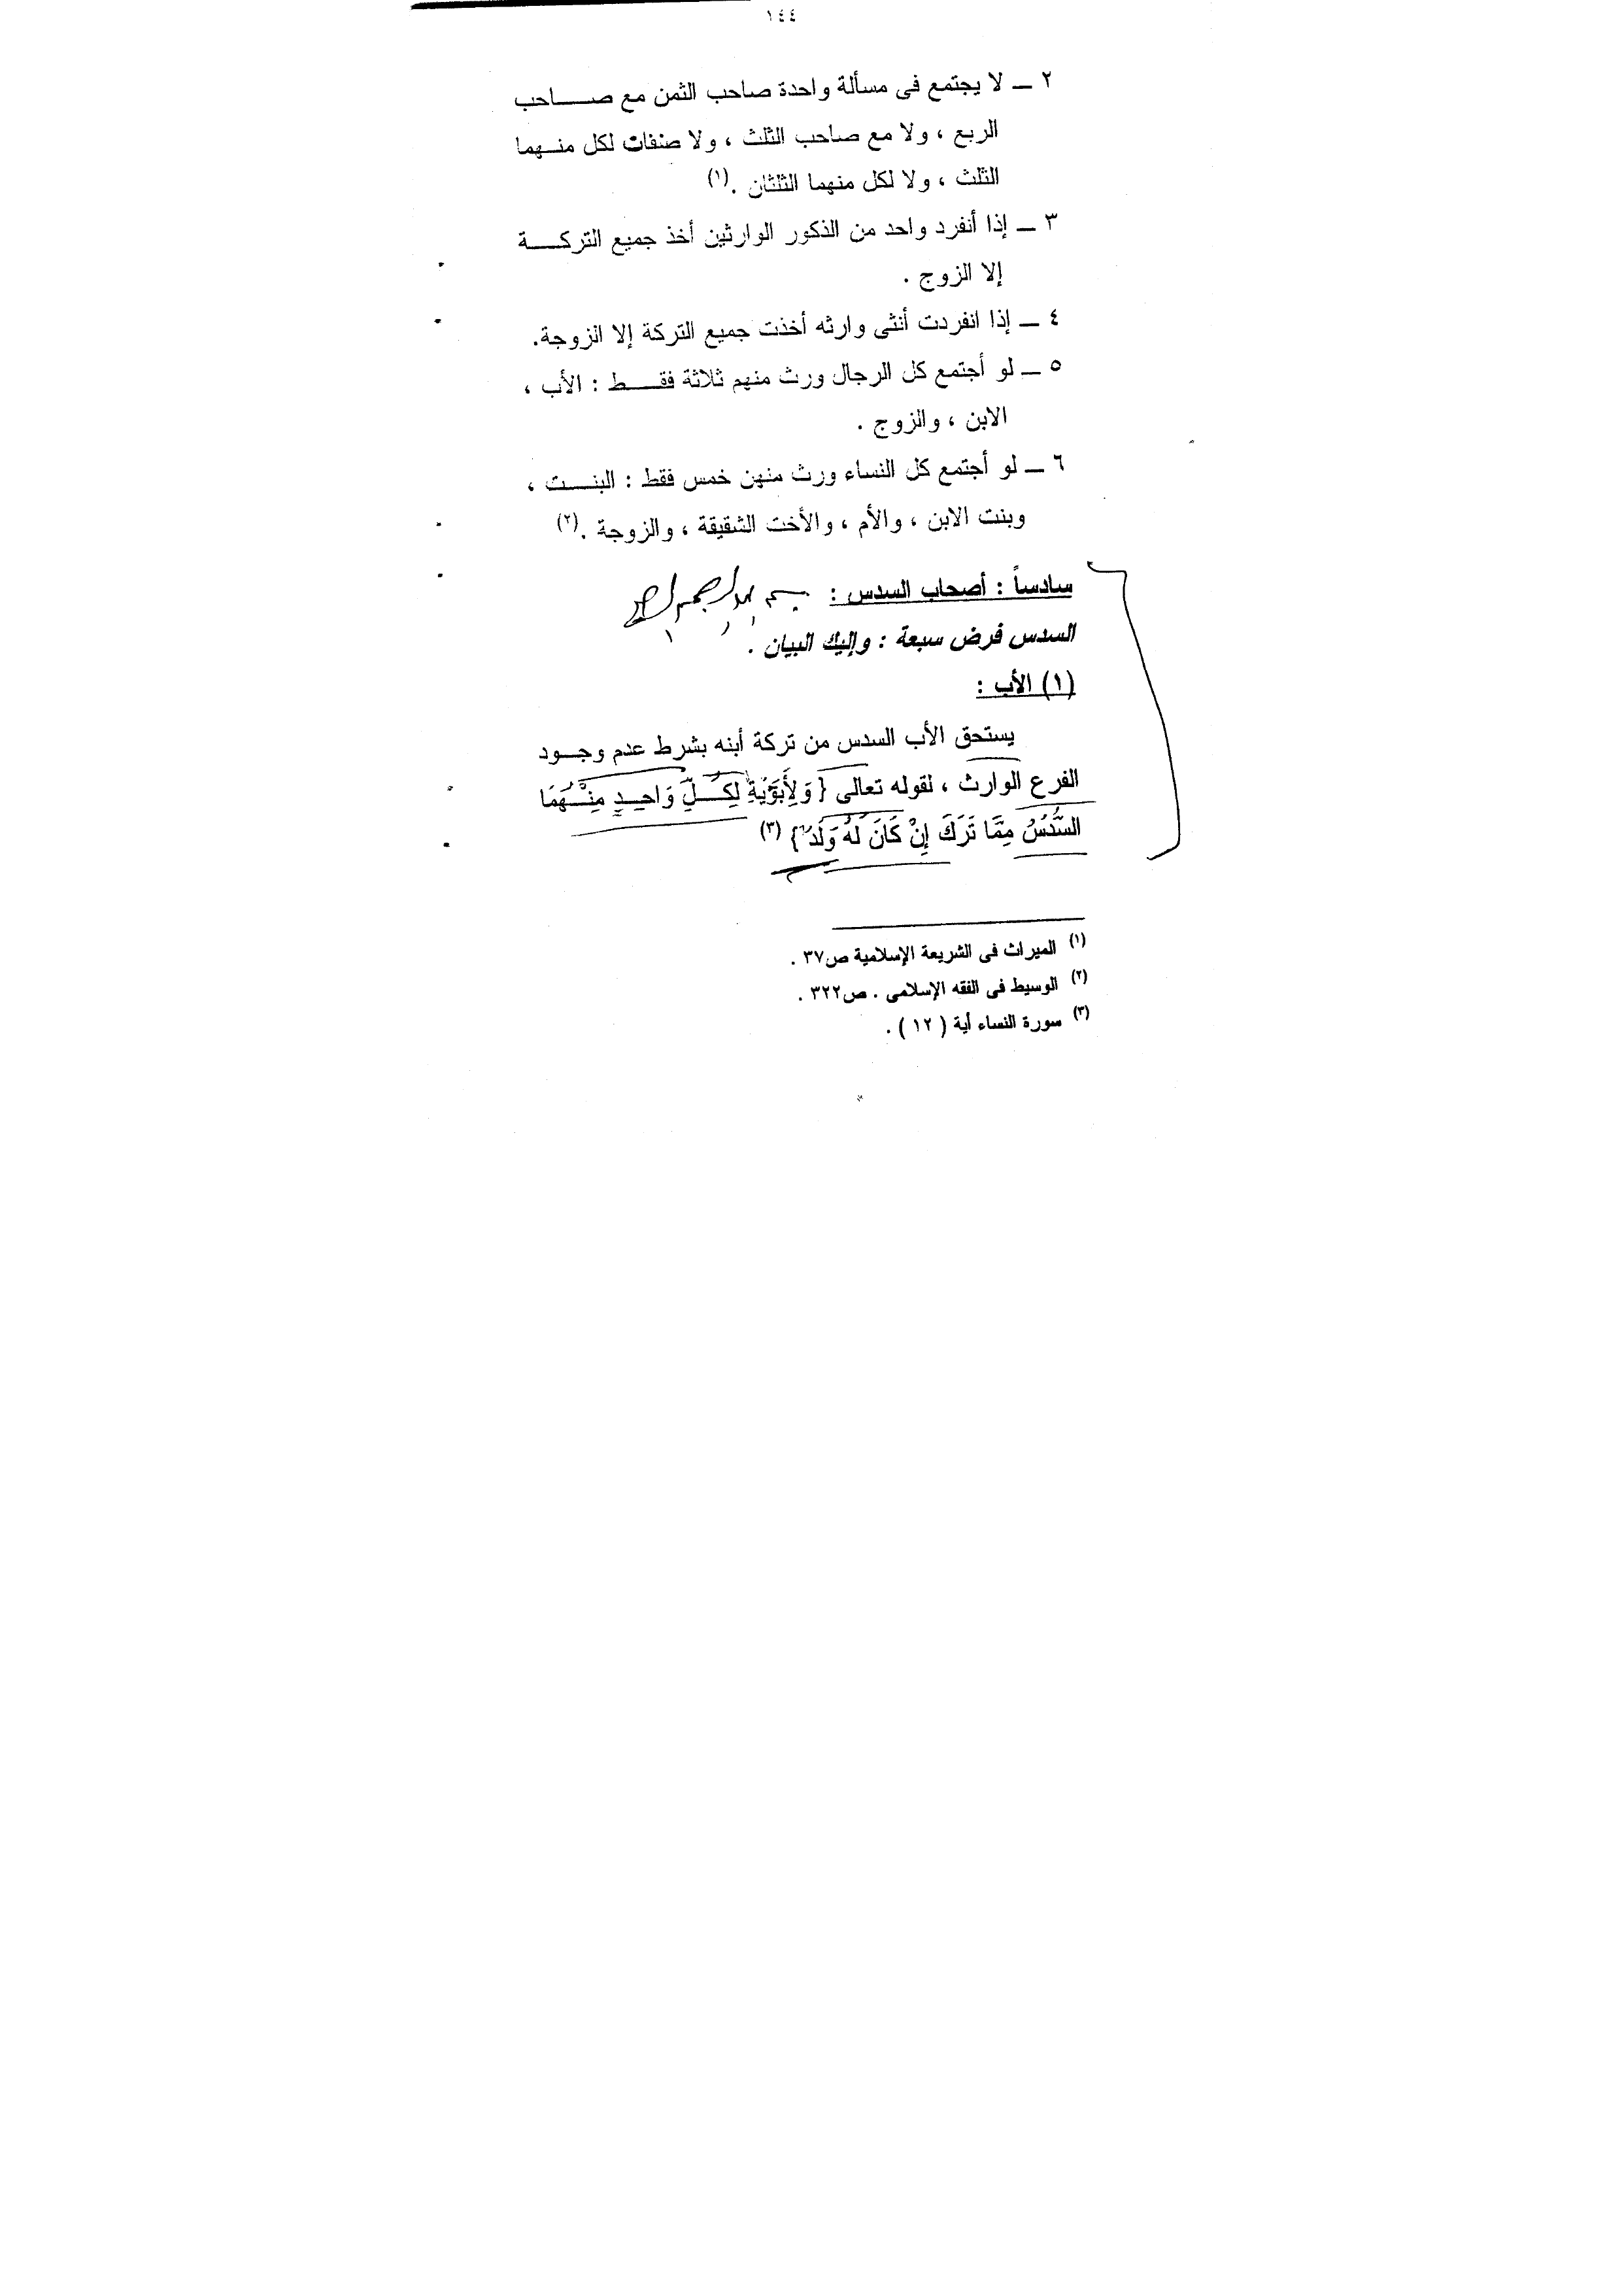 ١٤٤
٢ ــ لا يجتمع فى مسألة واحدة صاحب الثمن مع صـــاحب
الربع ، ولا مع صاحب الثلث ، ولا صنفات لكل منــهما
الثلث ، ولا لكل منهما الثلثان .(١)
٣ ــ إذا أنفرد واحد من الذكور الوارثين أخذ جميع التركـــة
إلا الزوج .
٤ ــ إذا انفردت أنثى وارثه أخذت جميع التركة إلا الزوجة.
٥ ــ لو أجتمع كل الرجال ورث منهم ثلاثة فقـــط : الأب ،
الابن ، والزوج .
٦ ــ لو أجتمع كل النساء ورث منهن خمس فقط : البنـــت ،
وبنت الابن ، والأم ، والأخت الشقيقة ، والزوجة .(٢)
سادساً : أصحاب السدس : بسم الله الرحمن الرحيم
السدس فرض سبعة : وإليك البيان .
(١) الأب :
يستحق الأب السدس من تركة أبنه بشرط عدم وجــود
الفرع الوارث ، لقوله تعالى {وَلِأَبَوَيْهِ لِكُــلِّ وَاحِــدٍ مِنْــهُمَا
السُّدُسُ مِمَّا تَرَكَ إِنْ كَانَ لَهُ وَلَدٌ} (٣)
(١) الميراث فى الشريعة الإسلامية ص٣٧ .
(٢) الوسيط فى الفقه الإسلامى . ص٣٢٢ .
(٣) سورة النساء أية ( ١٢ ) .